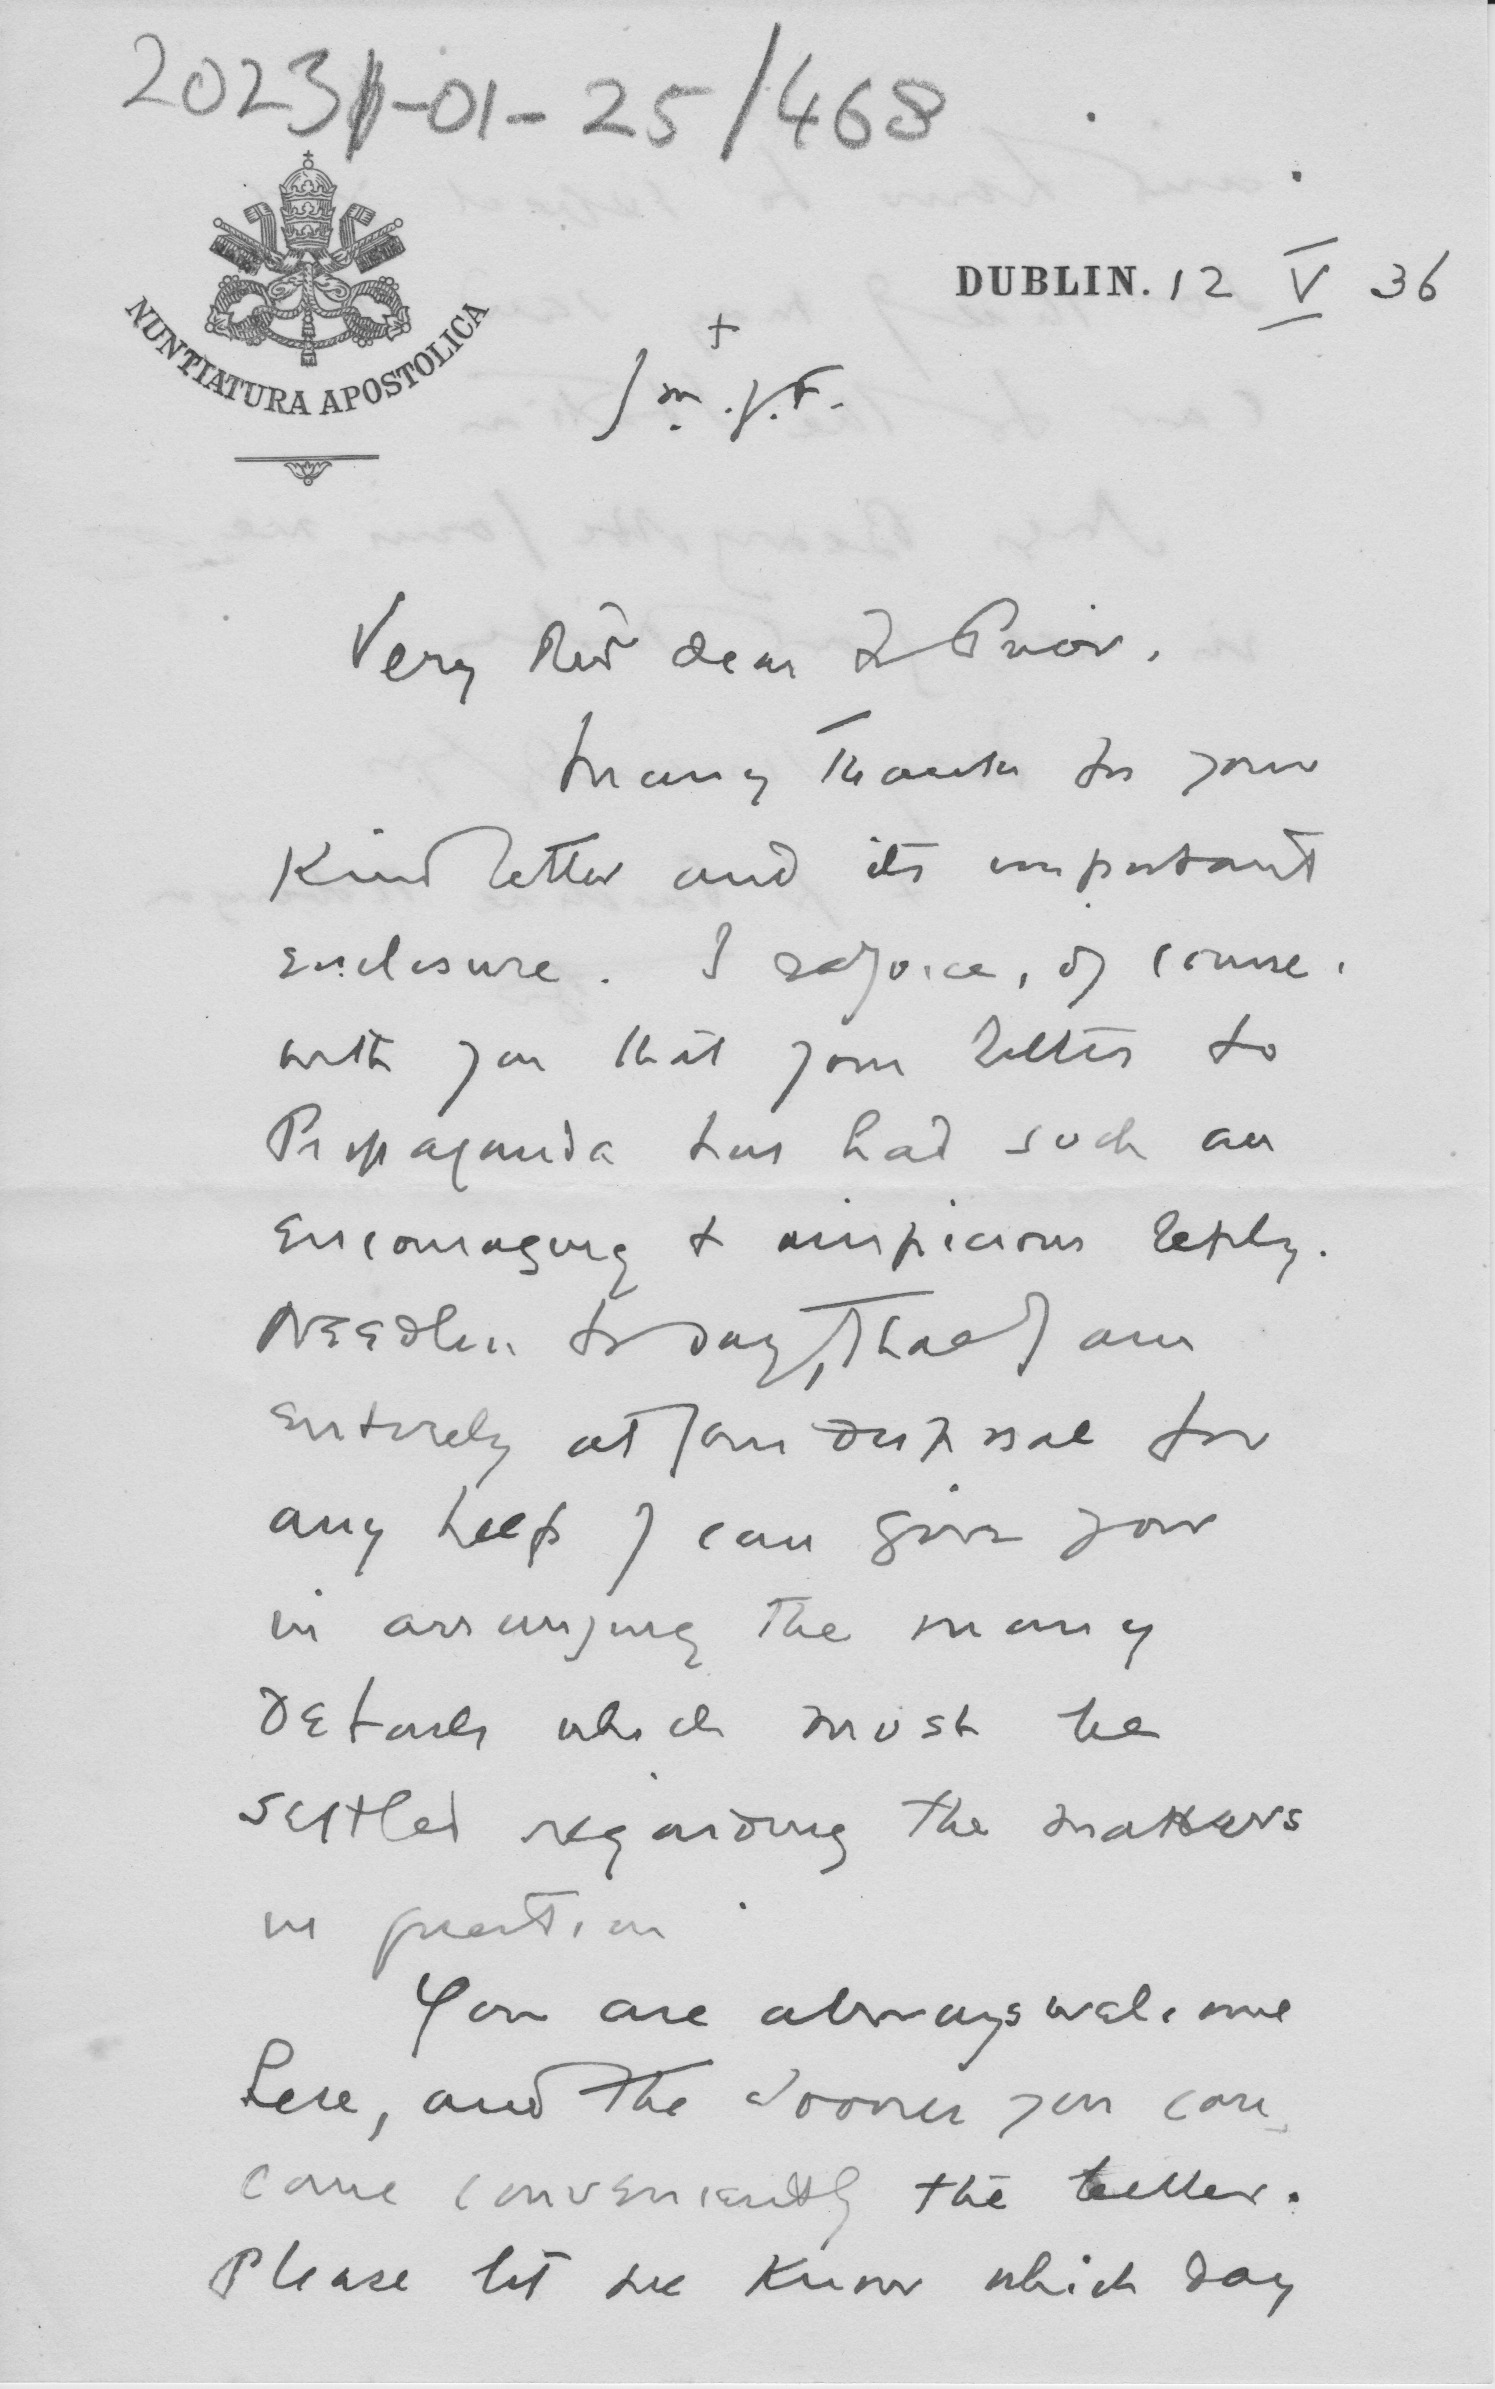 2023-01-25/468
NUNTIATURA APOSTOLICA
DUBLIN. 12 V 36
+
J.M.J.F.
Very Revd dear Fr Prior,
Many thanks for your
kind letter and its important
enclosure. I rejoice, of course,
with you that your letter to
Propaganda has had such an
encouraging & auspicious reply.
Needless to say, that I am
entirely at your disposal for
any help I can give you
in arranging the many
details which must be
settled regarding the matters
in question.
You are always welcome
here, and the sooner you can
come conveniently the better.
Please let me know which day